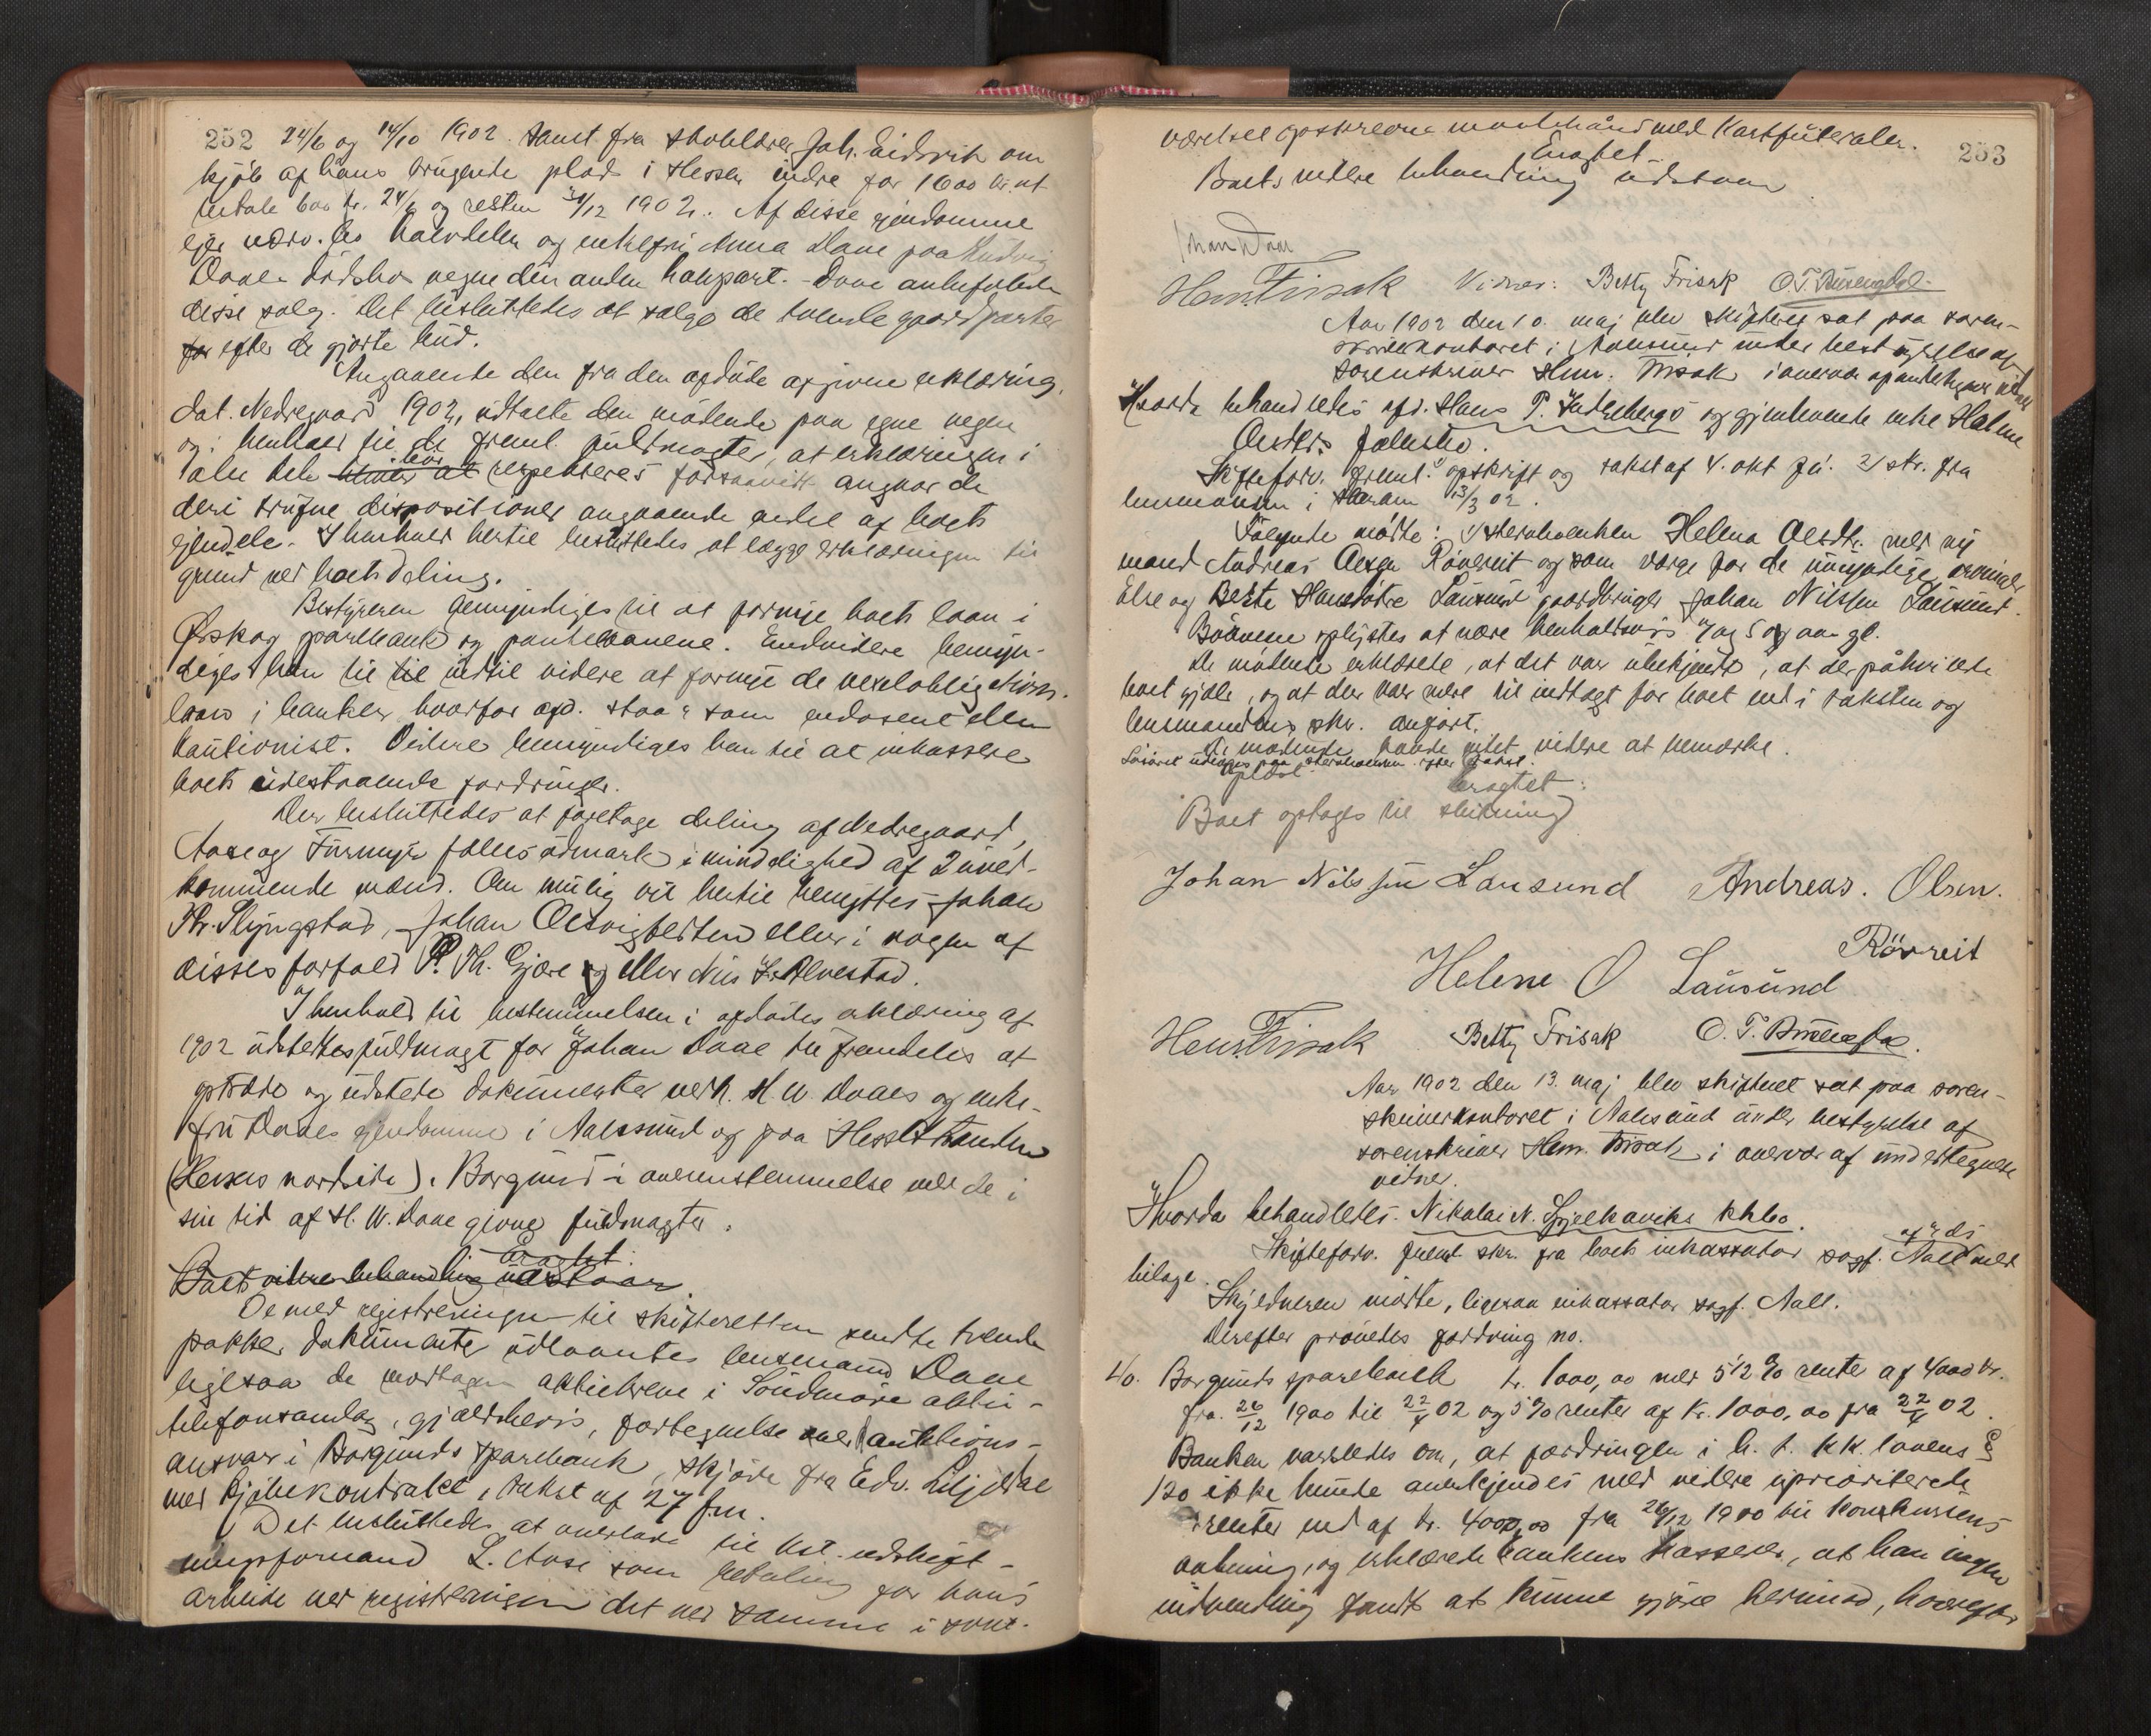 252 24/6 og 14/10 1902. Samt fra skolelærer Joh. Eidsvik om
kjöb af hans brugende plads i Hessen indre for 1600 kr. at
betale 600 kr. 24/6 og resten 31/12 1902. Af disse eiendomme
eier halvdelen og enkefru Anna Daae paa Ludvig
Daaes dödsbo vegne den anden halvpart. - Daae anbefalede
disse salg. Det besluttedes at sælge de tvende gaardparter
for efter de gjorte bud.
Angaaende den fra den afdöde afgivne erklæring,
dat. Nedregaard 1902, udtalte den mödende paa egne vegne
og i henhold til de freml. fuldmagter, at erklæringen i
alle dele bör respekteres forsaavidt angaar de
deri trufne dispositioner angaaende endel af boets
eiendele. I henhold hertil besluttedes at lægge erklæringen til
grund ved boets deling.
Bestyreren bemyndiges til at fornye boets laan i
Ørskog sparebank og pantelaanene. Endvidere bemyn-
diges han til til indtil videre at fornye de vexelobligations-
laan i banker, hvorfor afd. staar som endosent eller
kautionist. Videre bemyndiges han til at inkassere
boets udestaaende fordringer.
Der besluttedes at foretage deling af Nedregaard,
Aase og Furmyr fælles udmark i mindelighed af 2 uved-
kommende mænd. Om mulig vil hertil benyttes Johan
Kr. Slyngstad, Johan eller i nogen af
disses forfald P. Th. Gjære og eller Nils Alvestad.
I henhold til bestemmelsen i afdödes erklæring af
1902 udstedtes fuldmagt for Johan Daae til fremdeles at
optræde og udstede dokumenter vedk. H. W. Daaes og enke-
fru Daaes eiendomme i Aalesund og paa Hessestranden
(Hessens nordside) i Borgund i overensstemmelse med de i
sin tid af H. W. Daae givne fuldmagter.
Eragtet:
Boets videre behandling udstaar.
De med registreringen til skifteretten sendte tvende
pakker dokumenter udlaantes lensmand Daae
ligesaa de modtagne aktiebreve i Söndmöre aktie-
telefonsamlag, gjældsbevis, fortegnelse over kautions-
ansvar i Borgunds sparebank, skjöde fra Edv. Liljedal
med kjöbekontrakt, takst af 27 f.m.
Det besluttedes at overlade til kst. udskift-
ningsformand L. Aase som betaling for hans
arbeide ved registreringen det ved samme i sove-
værelset opskrevne med Kartfuteraler. 253
Eragtet
Boets videre behandling udstaar
Johan Daae
Hem Frisak Vidner: Betty Frisak
Aar 1902 den 10. maj blev skifteret sat paa soren-
skriverkontoret i Aalesund under bestyrelse af
sorenskriver Hem. Frisak i overvær af undertegnede vidner
Hvorda behandledes afd. Hans P. og gjenlevende enke Helene
Olsdtrs fællesbo.
Skifteforv. freml. opskrift og takst af 4. okt f.a. 2/ skr. fra
lensmanden i Haram 13/3 02.
Fölgende mödte: 1/ Helena Olsdtr. med ny
mand Andreas Olsen Rövreit og som værge for de umyndige arvinger
Else og Berte Hansdötre Lausund gaardbruger Johan Nilssen Lausund.
Börnene oplystes at være henholdsvis 7 og 5 aar gl.
De mödende erklærede, at det var ubekjendt, at der påhvilede
boet gjæld, og at der var mere til indtægt for boet end i taksten og
lensmandens skr. anfört.
De mödende havde intet videre at bemærke.
Lösöret udlægges paa efter takst.
Eragtet:
Boet optages til slutning
Johan Nilssen Lausund Andreas. Olsen.
Rövreit
Helene O Lausund
Hem Frisak Betty Frisak
Aar 1902 den 13. maj blev skifteret sat paa soren-
skriverkontoret i Aalesund under bestyrelse af
sorenskriver Hem. Frisak i overvær af undertegnede
vidner.
Hvorda behandledes: Nikolai N. Spjelkaviks kkbo.
Skifteforv. freml. skr. fra boets inkassator sagf. Aall med
bilage.
Skyldneren mödte, ligesaa inkassator sagf. Aall.
Derefter prövedes fordring no.
40. Borgunds sparebank kr. 1000,00 med 5 1/2 % rente af 4000 kr.
fra 26/12 1900 til 22/4 02 og 5% renter af Kr. 1000,00 fra 22/4 02.
Banken varsledes om, at fordringen i h. t. kk. lovens §
120 ikke kunde anerkjendes med videre uprioriterede
renter end af kr. 4000,00 fra 26/12 1900 til konkursens
aabning, og erklærede bankens kasserer, at han ingen
indvending fandt at kunne gjöre herimod, hvorefter